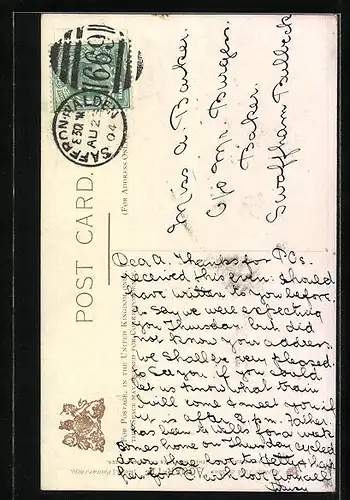 POST CARD.
(FOR ADDRESS ONLY
FOR POSTAGE IN THE UNITED KINGDOM ONLY
SAFFRON-WALDEN
8 30 PM
AU 23
04
669
Miss A. Barker.
C/o Mr. Burgess.
Baker.
Swaffham Bulbeck
Dear A. Thanks for P.Cs.
received this even: should
have written to you before
to say we were expecting
you Thursday, but did
not know your address.
we shall be very pleased
to see you if you could
let us know what train
will come & meet you if
it is after 8 p.m. Father
has been to Wells for a week
comes home on Thursday cycled
down there love to
for P.C. with love from all